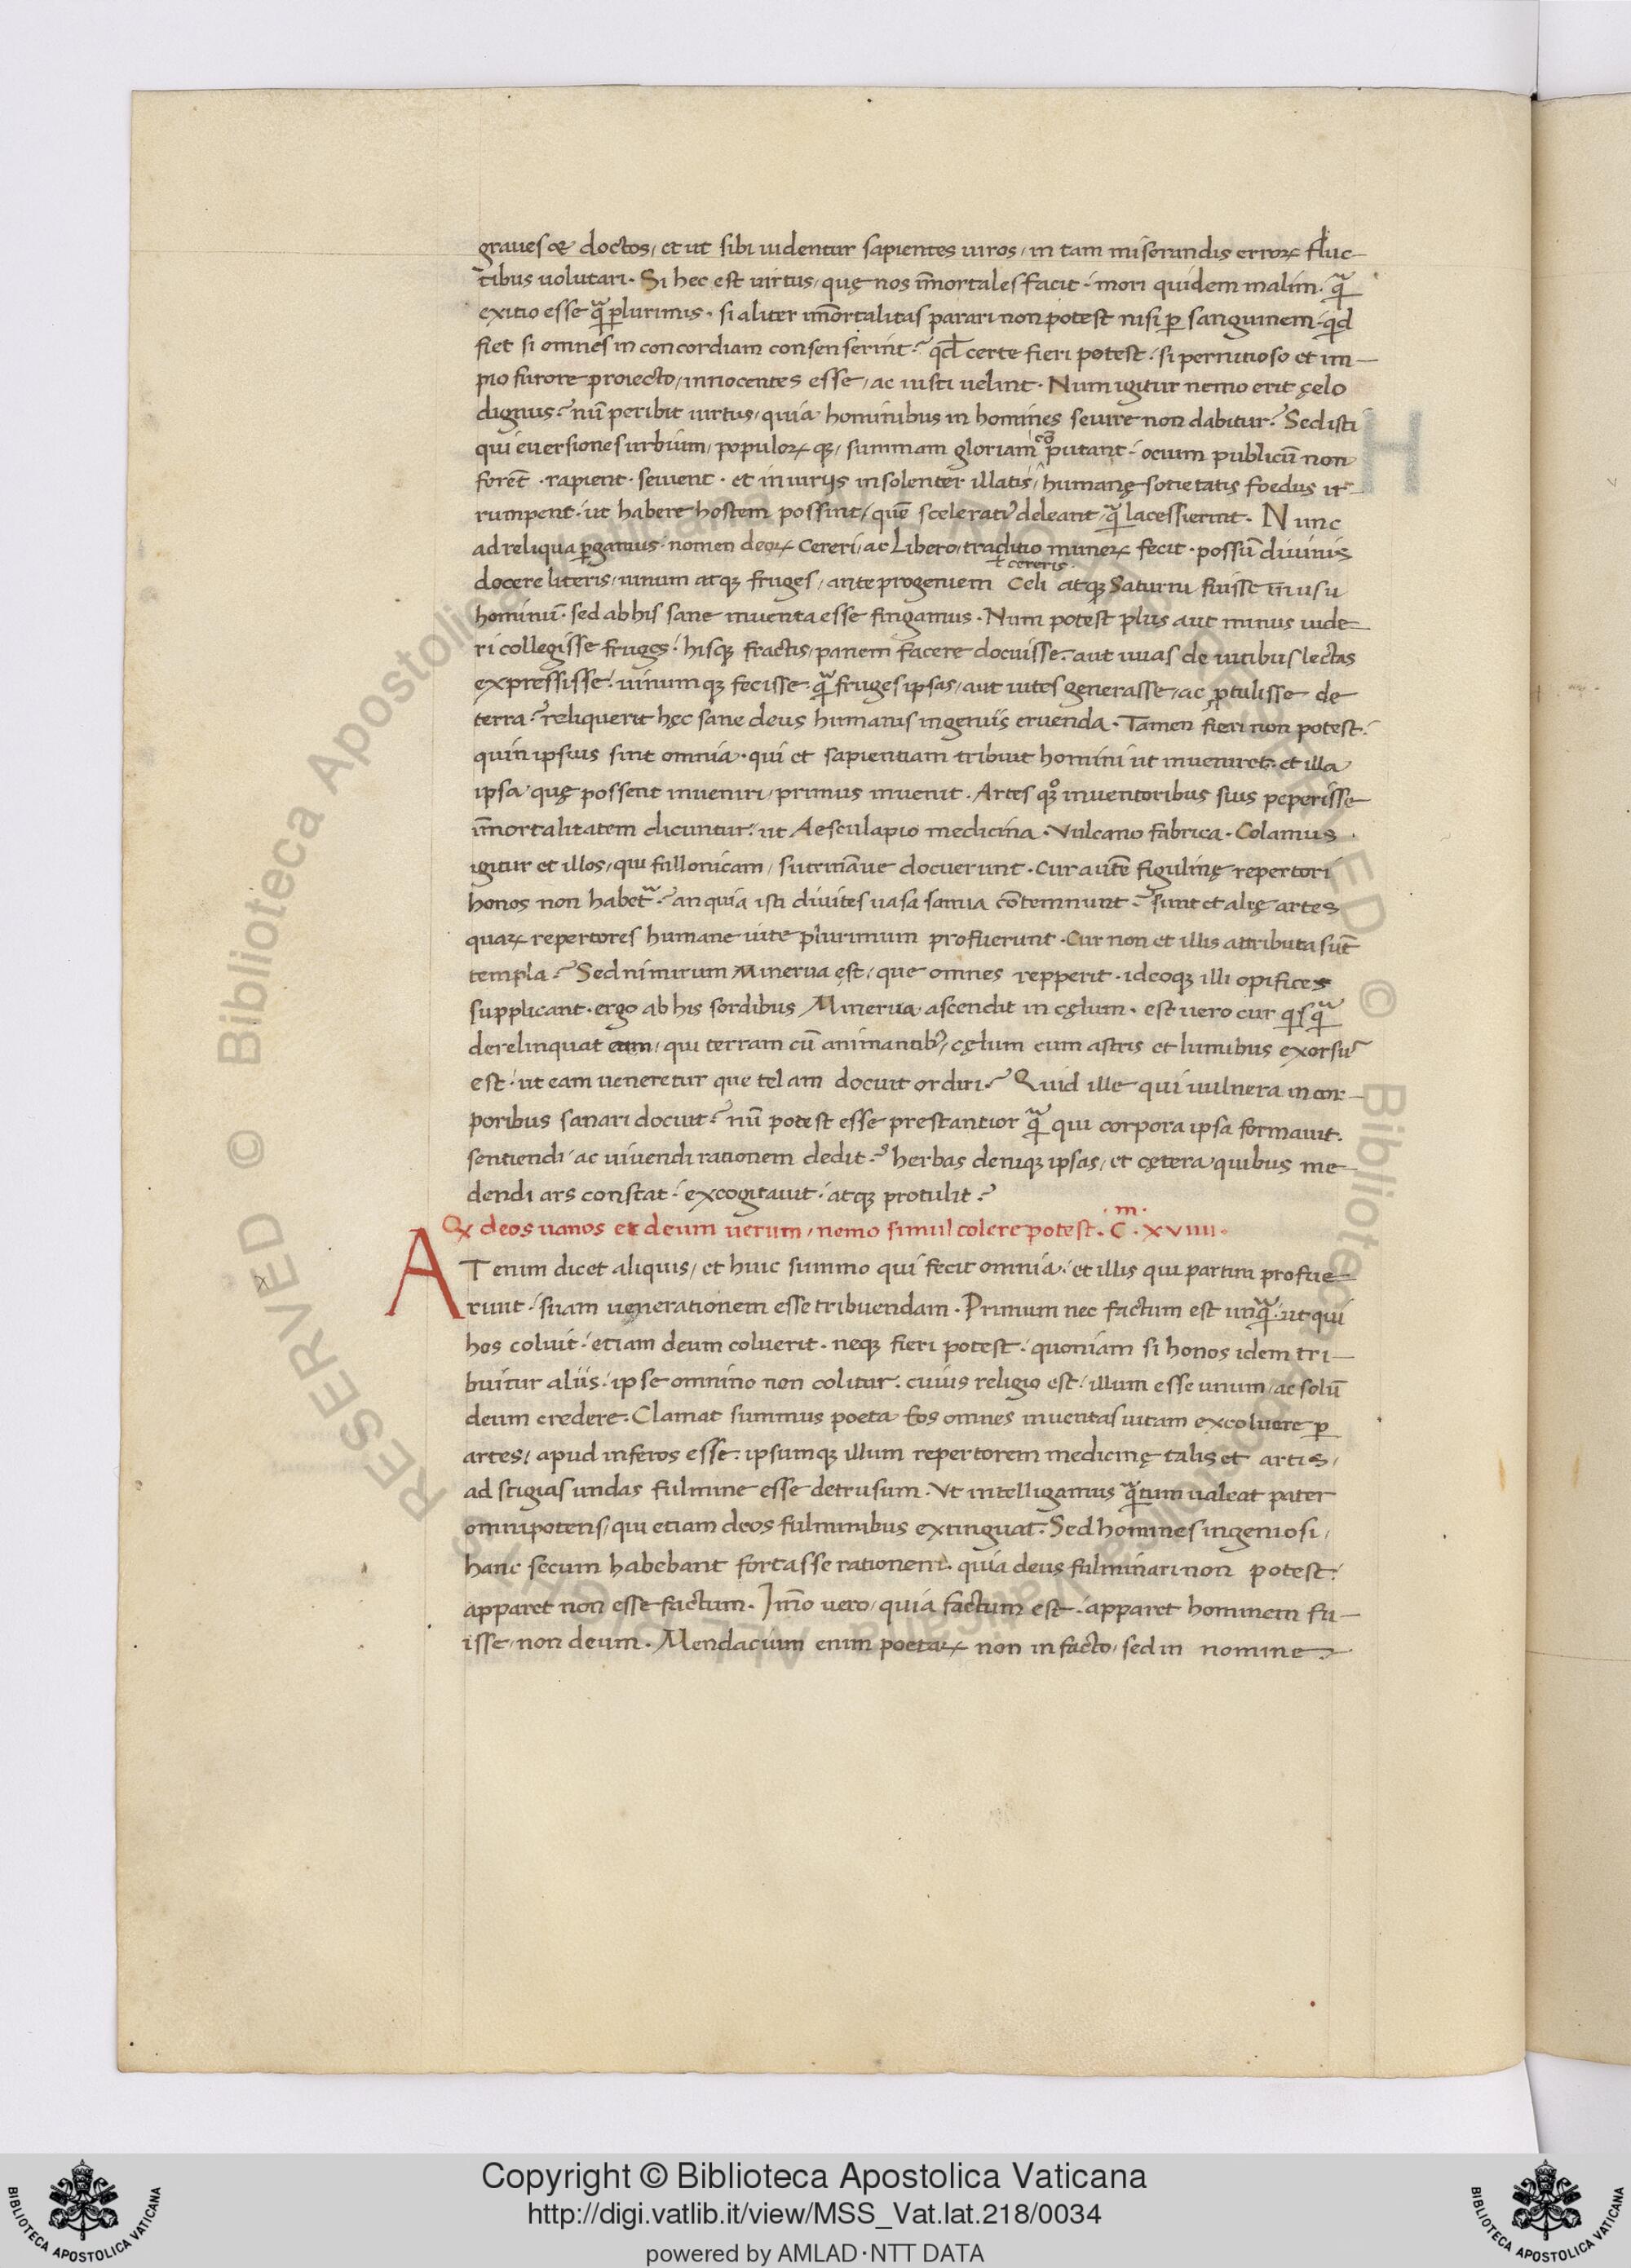 graues & doctos, et ut sibi uidentur sapientes uiros, in tam miserandis erroꝝ fluc-
tibus uolutari. Si hec est uirtus, quę nos īmortales facit. mori quidem malim. qͣ̄
exitio esse qͣ̄ plurimis. si aliter īmortalitas parari non potest nisi ꝑ sanguinem. qđ
fiet si omnes in concordiam consenserint? qđ certe fieri potest. si pernitioso et im-
pio furore proiecto, innocentes esse, ac iusti uelint. Num igitur nemo erit çelo
dignus? nū peribit uirtus, quia hominibus in homines seuire non dabitur? Sed isti
qui euersiones urbium, populoꝝ qꝫ, summam gloriam cō putant. ocium publicū non
ferēt. rapient. seuient. et iniuriis insolenter illatis, humanę societatis foedus ir-
rumpent. ut habere hostem possint, quē sceleratiꝰ deleant, qͣ̄ lacessierint. Nunc
ad reliqua ꝑgamus. nomen deoꝝ Cereri, ac Libero, traditio muneꝝ fecit. possū diuinis
cereris
docere literis, uinum atqꝫ fruges, ante progeniem Celi atqꝫ Saturni fuisse in usu
hominū. sed ab his sane inuenta esse fingamus. Num potest plus aut minus uide-
ri collegisse fruges. hisqꝫ fractis, panem facere docuisse. aut uuas de uitibus lectas
expressisse. uinumqꝫ fecisse. qͣ̄ fruges ipsas, aut uites generasse, ac ꝓtulisse de
terra? reliquerit hęc sane deus humanis ingeniis eruenda. Tamen fieri non potest.
quin ipsius sint omnia. qui et sapientiam tribuit homini ut inueniret. et illa
ipsa quę possent inueniri, primus inuenit. Artes qꝫ inuentoribus suis peperisse
īmortalitatem dicuntur. ut Aesculapio medicina. Vulcano fabrica. Colamus
igitur et illos, qui fullonicam, sutrināue docuerunt. Cur autē figulinę repertori
honos non habetᷣ? an quia isti diuites uasa samia cōtemnunt? sunt et alię artes
quaꝝ repertores humane uite plurimum profuerunt. Cur non et illis attributa sūt
templa? Sed nimirum Minerua est, que omnes repperit. ideoqꝫ illi opifices
supplicant. ergo ab his sordibus Minerua ascendit in cęlum. est uero cur qisqͣ̄
derelinquat eum, qui terram cū animantibꝰ, cęlum cum astris et luminibus exorsuꝰ
est. ut eam ueneretur que telam docuit ordiri? Quid ille qui uulnera in cor-
poribus sanari docuit? nū potest esse prestantior qͣ̄ qui corpora ipsa formauit.
sentiendi. ac uiuendi rationem dedit? herbas deniqꝫ ipsas, et cętera quibus me-
dendi ars constat. excogitauit. atqꝫ protulit?
Qx deos uanos et deum uerum, nemo simul colere potest. C.m XVIIII.
ATenim dicet aliquis, et huic summo qui fecit omnia. et illis qui partim profue-
runt. suam uenerationem esse tribuendam. Primum nec factum est unqͣ̄. ut qui
hos coluit. etiam deum coluerit. neqꝫ fieri potest. quoniam si honos idem tri-
buitur aliis. ipse omnino non colitur. cuius religio est. illum esse unum, ac solū
deum credere. Clamat summus poeta Eos omnes inuentas uitam excoluere ꝑ
artes, apud inferos esse. ipsumqꝫ illum repertorem medicinę talis et artis,
ad stigias undas fulmine esse detrusum. Vt intelligamus qͣ̄tum ualeat pater
omnipotens, qui etiam deos fulminibus extinguat. Sed homines ingeniosi,
hanc secum habebant fortasse rationem. quia deus fulminari non potest.
apparet non esse factum. Immo uero, quia factum est. apparet hominem fu-
isse, non deum. Mendacium enim poetaꝝ non in facto, sed in nomine
H
Biblioteca Apostolica Vaticana
RESERVED © Biblioteca Apostolica Vaticana ALL RIGHTS
Copyright © Biblioteca Apostolica Vaticana
http://digi.vatlib.it/view/MSS_Vat.lat.218/0034
powered by AMLAD·NTT DATA
BIBLIOTECA APOSTOLICA VATICANA
BIBLIOTECA APOSTOLICA VATICANA